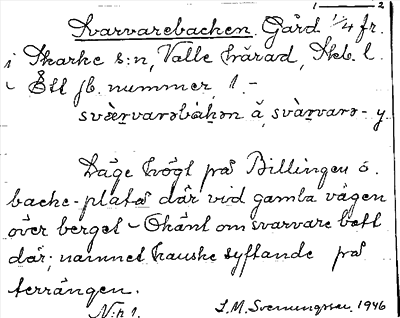 1 — 2
Svarvarebacken. Gård 1/4 fr.
i Skarke s:n, Valle härad, Skb. l.
Ett jb. nummer, 1. –
svàrvarəbàkən å, svàrvarə- y.
Läge högt på Billingen ö.
backe-platå där vid gamla vägen
över berget – Okänt om svarvare bott
där; namnet kanske syftande på
terrängen.
N:r 1. S. M. Svenungsson. 1946